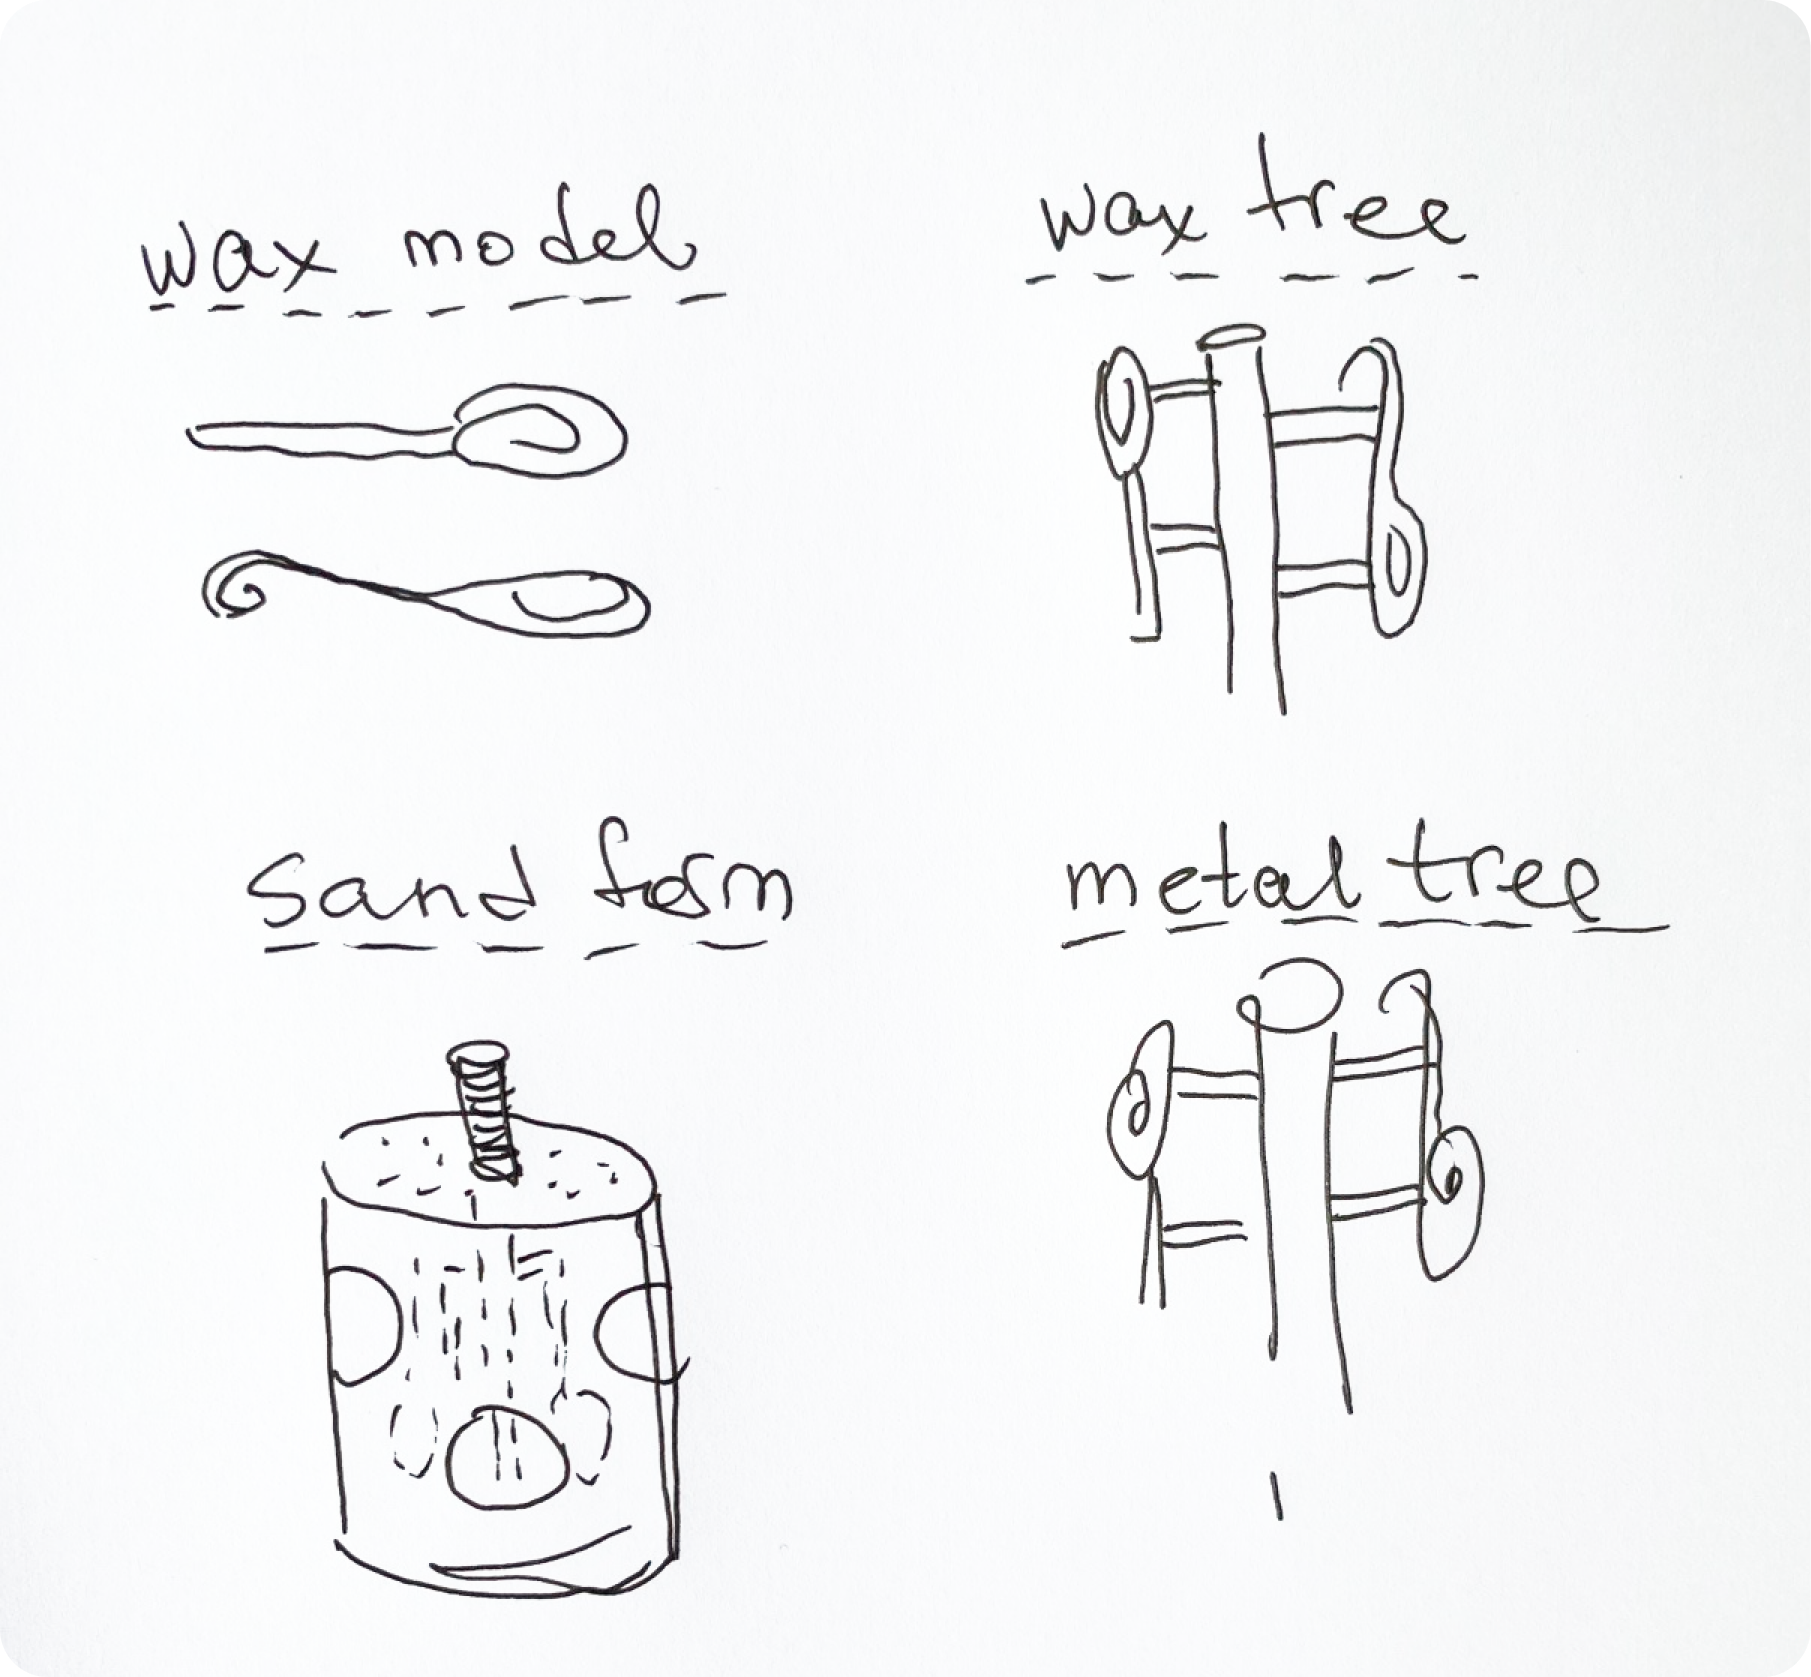 wax model
wax tree
sand form
metal tree